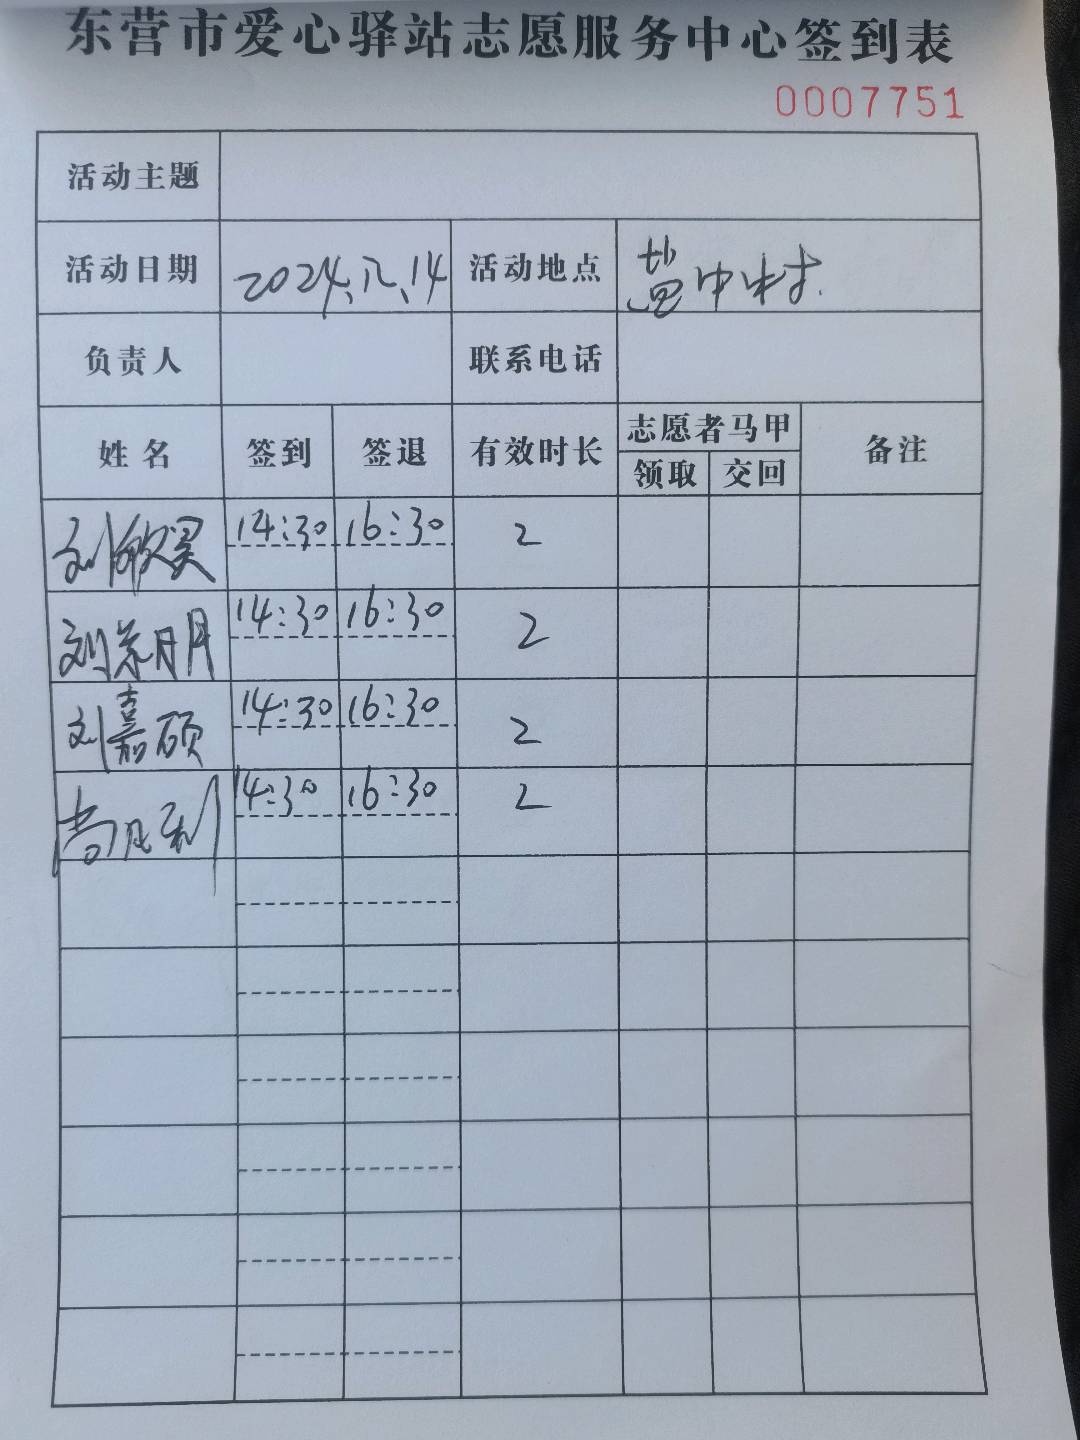 东营市爱心驿站志愿服务中心签到表
0007751
活动主题
活动日期 2024、八、14 活动地点 盐中村.
负责人 联系电话
姓名 签到 签退 有效时长 志愿者马甲 备注
领取 交回
刘 14:30 16:30 2
刘 14:30 16:30 2
刘嘉硕 14:30 16:30 2
尚胜利 14:30 16:30 2